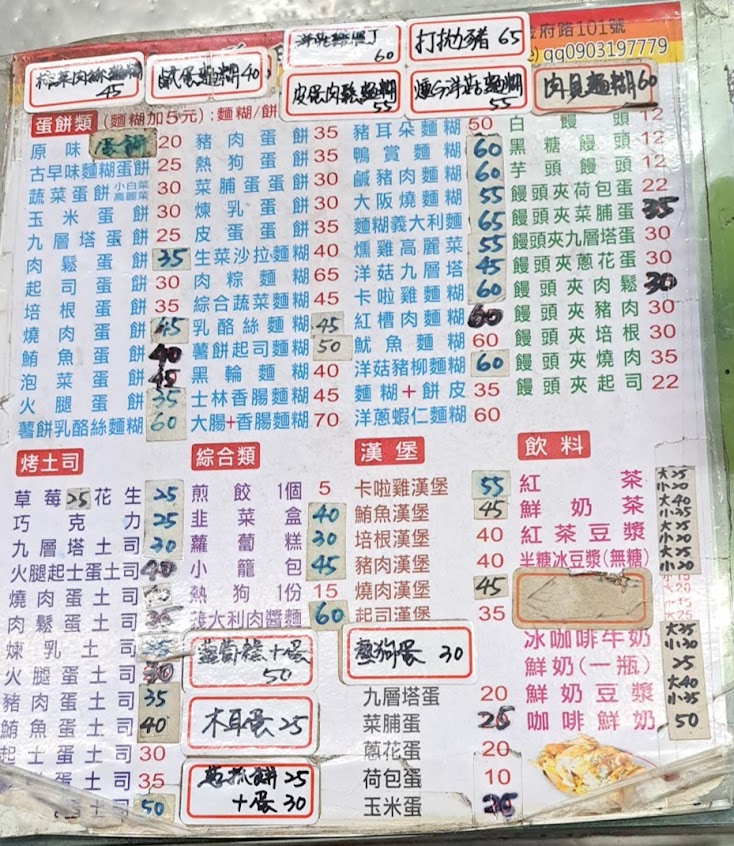 金府路101號
qq0903197779
60
打拋豬 65
榨菜肉絲麵糊 45
鹹蛋麵糊 40
皮蛋肉鬆麵糊 55
燻雞洋菇麵糊 55
肉貝麵糊 60
蛋餅類 (麵糊加5元);麵糊/餅
原味蛋餅 20
古早味麵糊蛋餅 25
蔬菜蛋餅 小白菜 高麗菜 30
玉米蛋餅 30
九層塔蛋餅 25
肉鬆蛋餅 35
起司蛋餅 30
培根蛋餅 35
燒肉蛋餅 45
鮪魚蛋餅 40
泡菜蛋餅 45
火腿蛋餅 35
薯餅乳酪絲麵糊 60
豬肉蛋餅 35
熱狗蛋餅 35
菜脯蛋蛋餅 30
煉乳蛋餅 30
皮蛋蛋餅 35
生菜沙拉麵糊 40
肉粽麵糊 65
綜合蔬菜麵糊 45
乳酪絲麵糊 45
薯餅起司麵糊 50
黑輪麵糊 40
士林香腸麵糊 45
大腸+香腸麵糊 70
豬耳朵麵糊 50
鴨賞麵糊 60
鹹豬肉麵糊 60
大阪燒麵糊 55
麵糊義大利麵 65
燻雞高麗菜 55
洋菇九層塔 45
卡啦雞麵糊 60
紅槽肉麵糊 60
魷魚麵糊 60
洋菇豬柳麵糊 60
麵糊+餅皮 35
洋蔥蝦仁麵糊 60
白饅頭 12
黑糖饅頭 12
芋頭饅頭 12
饅頭夾荷包蛋 22
饅頭夾菜脯蛋 35
饅頭夾九層塔蛋 30
饅頭夾蔥花蛋 30
饅頭夾肉鬆 30
饅頭夾豬肉 30
饅頭夾培根 30
饅頭夾燒肉 35
饅頭夾起司 22
烤土司
草莓 25 花生 25
巧克力 25
九層塔土司 30
火腿起士蛋土司 40
燒肉蛋土司
肉鬆蛋土司
煉乳土司
火腿蛋土司 30
豬肉蛋土司 35
鮪魚蛋土司 40
起士蛋土司 30
蛋土司 35
司 50
綜合類
煎餃 1個 5
韭菜盒 40
蘿蔔糕 30
小籠包 45
熱狗 1份 15
義大利肉醬麵 60
蘿蔔糕+蛋 50
木耳蛋 25
蔥抓餅 25
+蛋 30
漢堡
卡啦雞漢堡 55
鮪魚漢堡 45
培根漢堡 40
豬肉漢堡 40
燒肉漢堡 45
起司漢堡 35
熱狗蛋 30
九層塔蛋 20
菜脯蛋 25
蔥花蛋 20
荷包蛋 10
玉米蛋
飲料
紅茶 大25 小20
鮮奶茶 大40 小35
紅茶豆漿 大25 小20
半糖冰豆漿(無糖) 大25 小20
冰咖啡牛奶 大35 小30
鮮奶(一瓶) 25
鮮奶豆漿 大40 小35
咖啡鮮奶 50